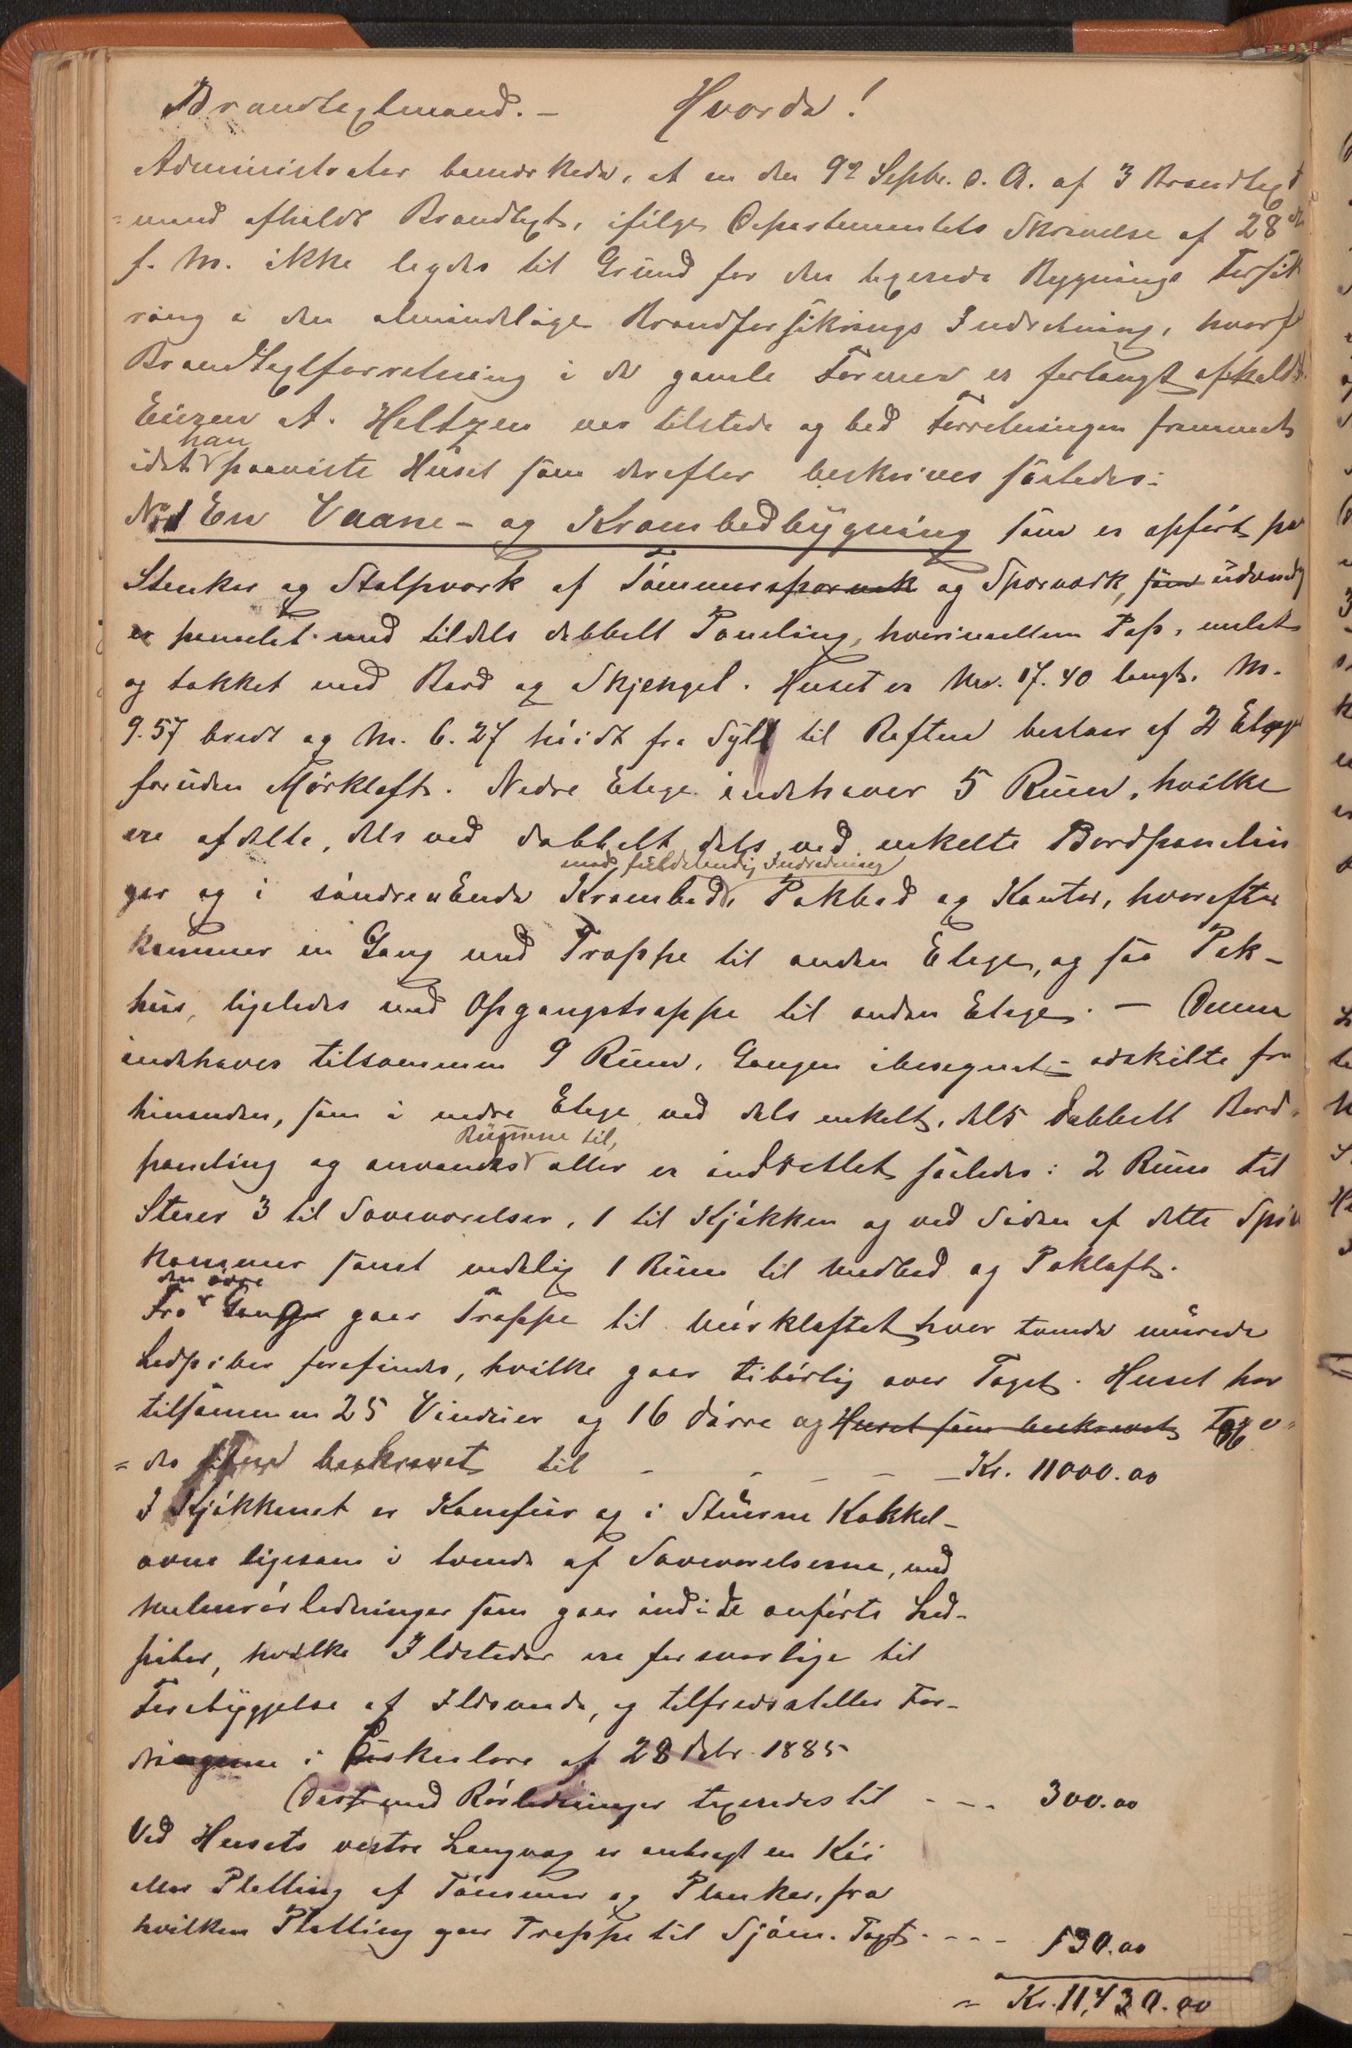 Brandtaxtmænd. – Hvorda!
Administrator bemærkede, at en den 9de Septbr. d. A. af 3 Brandtaxt
= mænd afholdt Brandtaxt, ifølge Departementets Skrivelse af 28de
f. M. ikke lagdes til Grund for den taxerede Bygnings Forsik
ring i den almindelige Brandforsikrings Indretning, hvorfor
Brandtaxtforretning i de gamle Former er forlangt afholdt.
Eieren A. Heltzen var tilstede og bad Forretningen fremmet
idet han paaviste Huset som derefter beskrives saaledes:
No 1 En Vaane- og Krambodbygning som er opført paa
Stenkar og Stolpværk af Tømmer sparværk og Sparværk, som udvendig
er panelet med tildels dobbelt Paneling, hvorimellem Pap, malet
og takket med Bord og Skjengel. Huset er Mr. 17.40 langt, M.
9.57 bredt og M. 6.27 høidt fra Syll til Raften bestaar af 2 Etager
foruden Mørkloft. Nedre Etage indehaver 5 Rum, hvilke
ere afdelte, dels ved dobbelt dels ved enkelte Bordpanelin
ger og i søndre Ende Krambod med fuldstendig Indredning, Pakbod og Kontor, hvorefter
kommer en Gang med Trappe til anden Etage, og saa Pak-
hus, ligeledes med Opgangstrappe til anden Etage. – Denne
indehaver tilsammen 9 Rum, Gangen iberegnet – adskilte fra
hinanden, som i nedre Etage ved dels enkelt, dels dobbelt Bord-
paneling og anvendes Rummene til, eller er indrettet saaledes: 2 Rum til
Stuer 3 til Soveværelser, 1 til Kjøkken og ved Siden af dette Spise
kammer samt endelig 1 Rum til Madbod og Pakloft.
Fra den øvre Gang gaar Trappe til Mørkloftet hvor tvende murede
Ledpiber forefindes, hvilke gaar tibørlig over Taget. Huset har
tilsammen 25 Vinduer og 16 Dørre og Huset som beskrevet taxe=
= des som beskrevet til – – – – – Kr. 11000.00
I Kjøkkenet er Komfur og i Stuerne Kakkel-
ovne ligesom i tvende af Soveværelserne, med
Malmrørledninger som gaar ind i de anførte Led-
piber, hvilke Ildsteder ere forsvarlige til
Forebyggelse af Ildsvaade, og tilfredsstiller For-
dringerne i Circulære af 28 Debr. 1885
Disse med Rørledninger taxeredes til - - - 300.00
Ved Husets vestre Langvæg er anbragt en Kai
eller Platting af Tømmer og Planker, fra
hvilken Platting gaar Trappe til Sjøen. Taxt. - - - 130.00
= Kr. 11,430.00